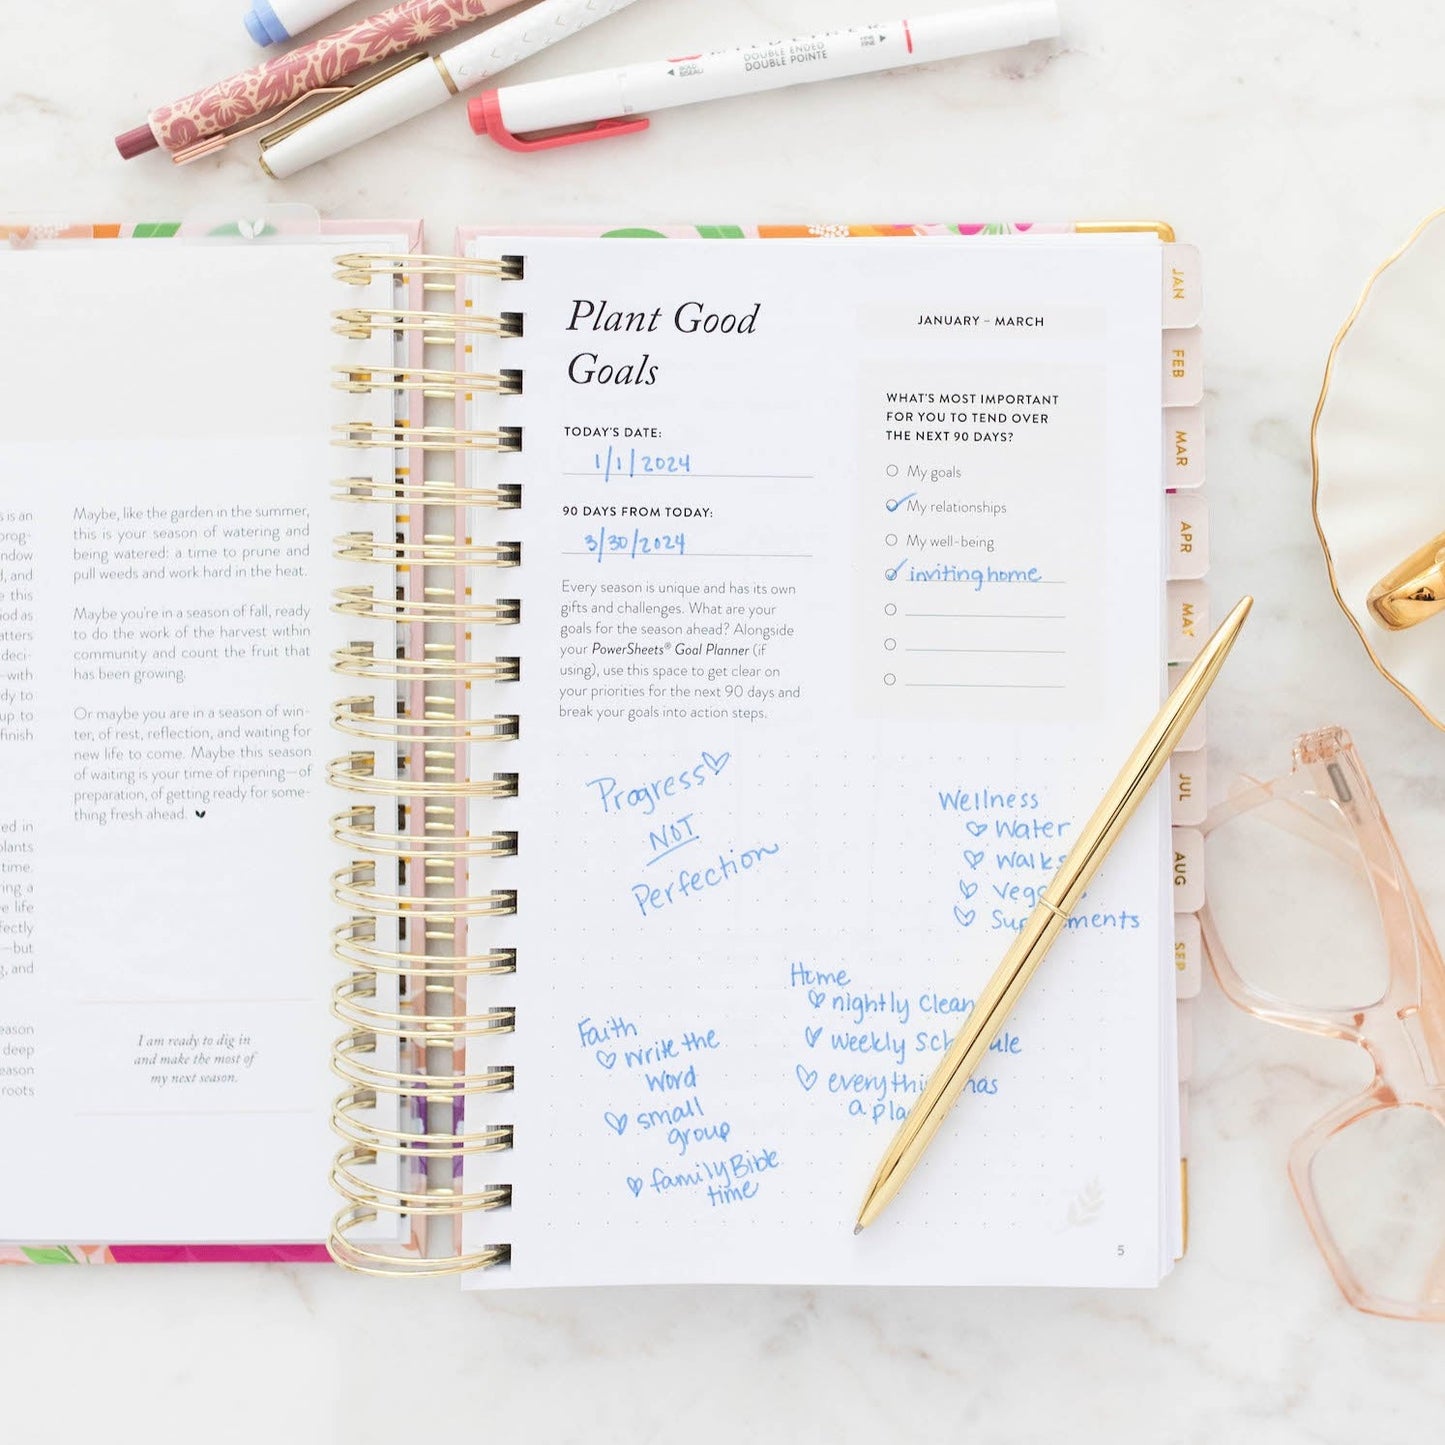 BOLD
BISEAU
DOUBLE ENDED
DOUBLE POINTE
FINE
FINE
s is an
prog-
ndow
d, and
e this
iod as
atters
deci-
—with
dy to
up to
finish
ed in
plants
time.
ring a
e life
fectly
—but
g, and
eason
deep
eason
roots
Maybe, like the garden in the summer,
this is your season of watering and
being watered: a time to prune and
pull weeds and work hard in the heat.
Maybe you're in a season of fall, ready
to do the work of the harvest within
community and count the fruit that
has been growing.
Or maybe you are in a season of win-
ter, of rest, reflection, and waiting for
new life to come. Maybe this season
of waiting is your time of ripening—of
preparation, of getting ready for some-
thing fresh ahead.
I am ready to dig in
and make the most of
my next season.
Plant Good
Goals
TODAY'S DATE:
1/1/2024
90 DAYS FROM TODAY:
3/30/2024
Every season is unique and has its own
gifts and challenges. What are your
goals for the season ahead? Alongside
your PowerSheets® Goal Planner (if
using), use this space to get clear on
your priorities for the next 90 days and
break your goals into action steps.
JANUARY – MARCH
WHAT'S MOST IMPORTANT
FOR YOU TO TEND OVER
THE NEXT 90 DAYS?
My goals
My relationships
My well-being
inviting home
Progress
NOT
Perfection
Wellness
Water
Walks
Veg
Sup ments
Home
nightly Clean
weekly Sch ule
everythi has
a pla
Faith
Write the
Word
small
group
family Bible
time
5
JAN
FEB
MAR
APR
MAY
JUL
AUG
SEP